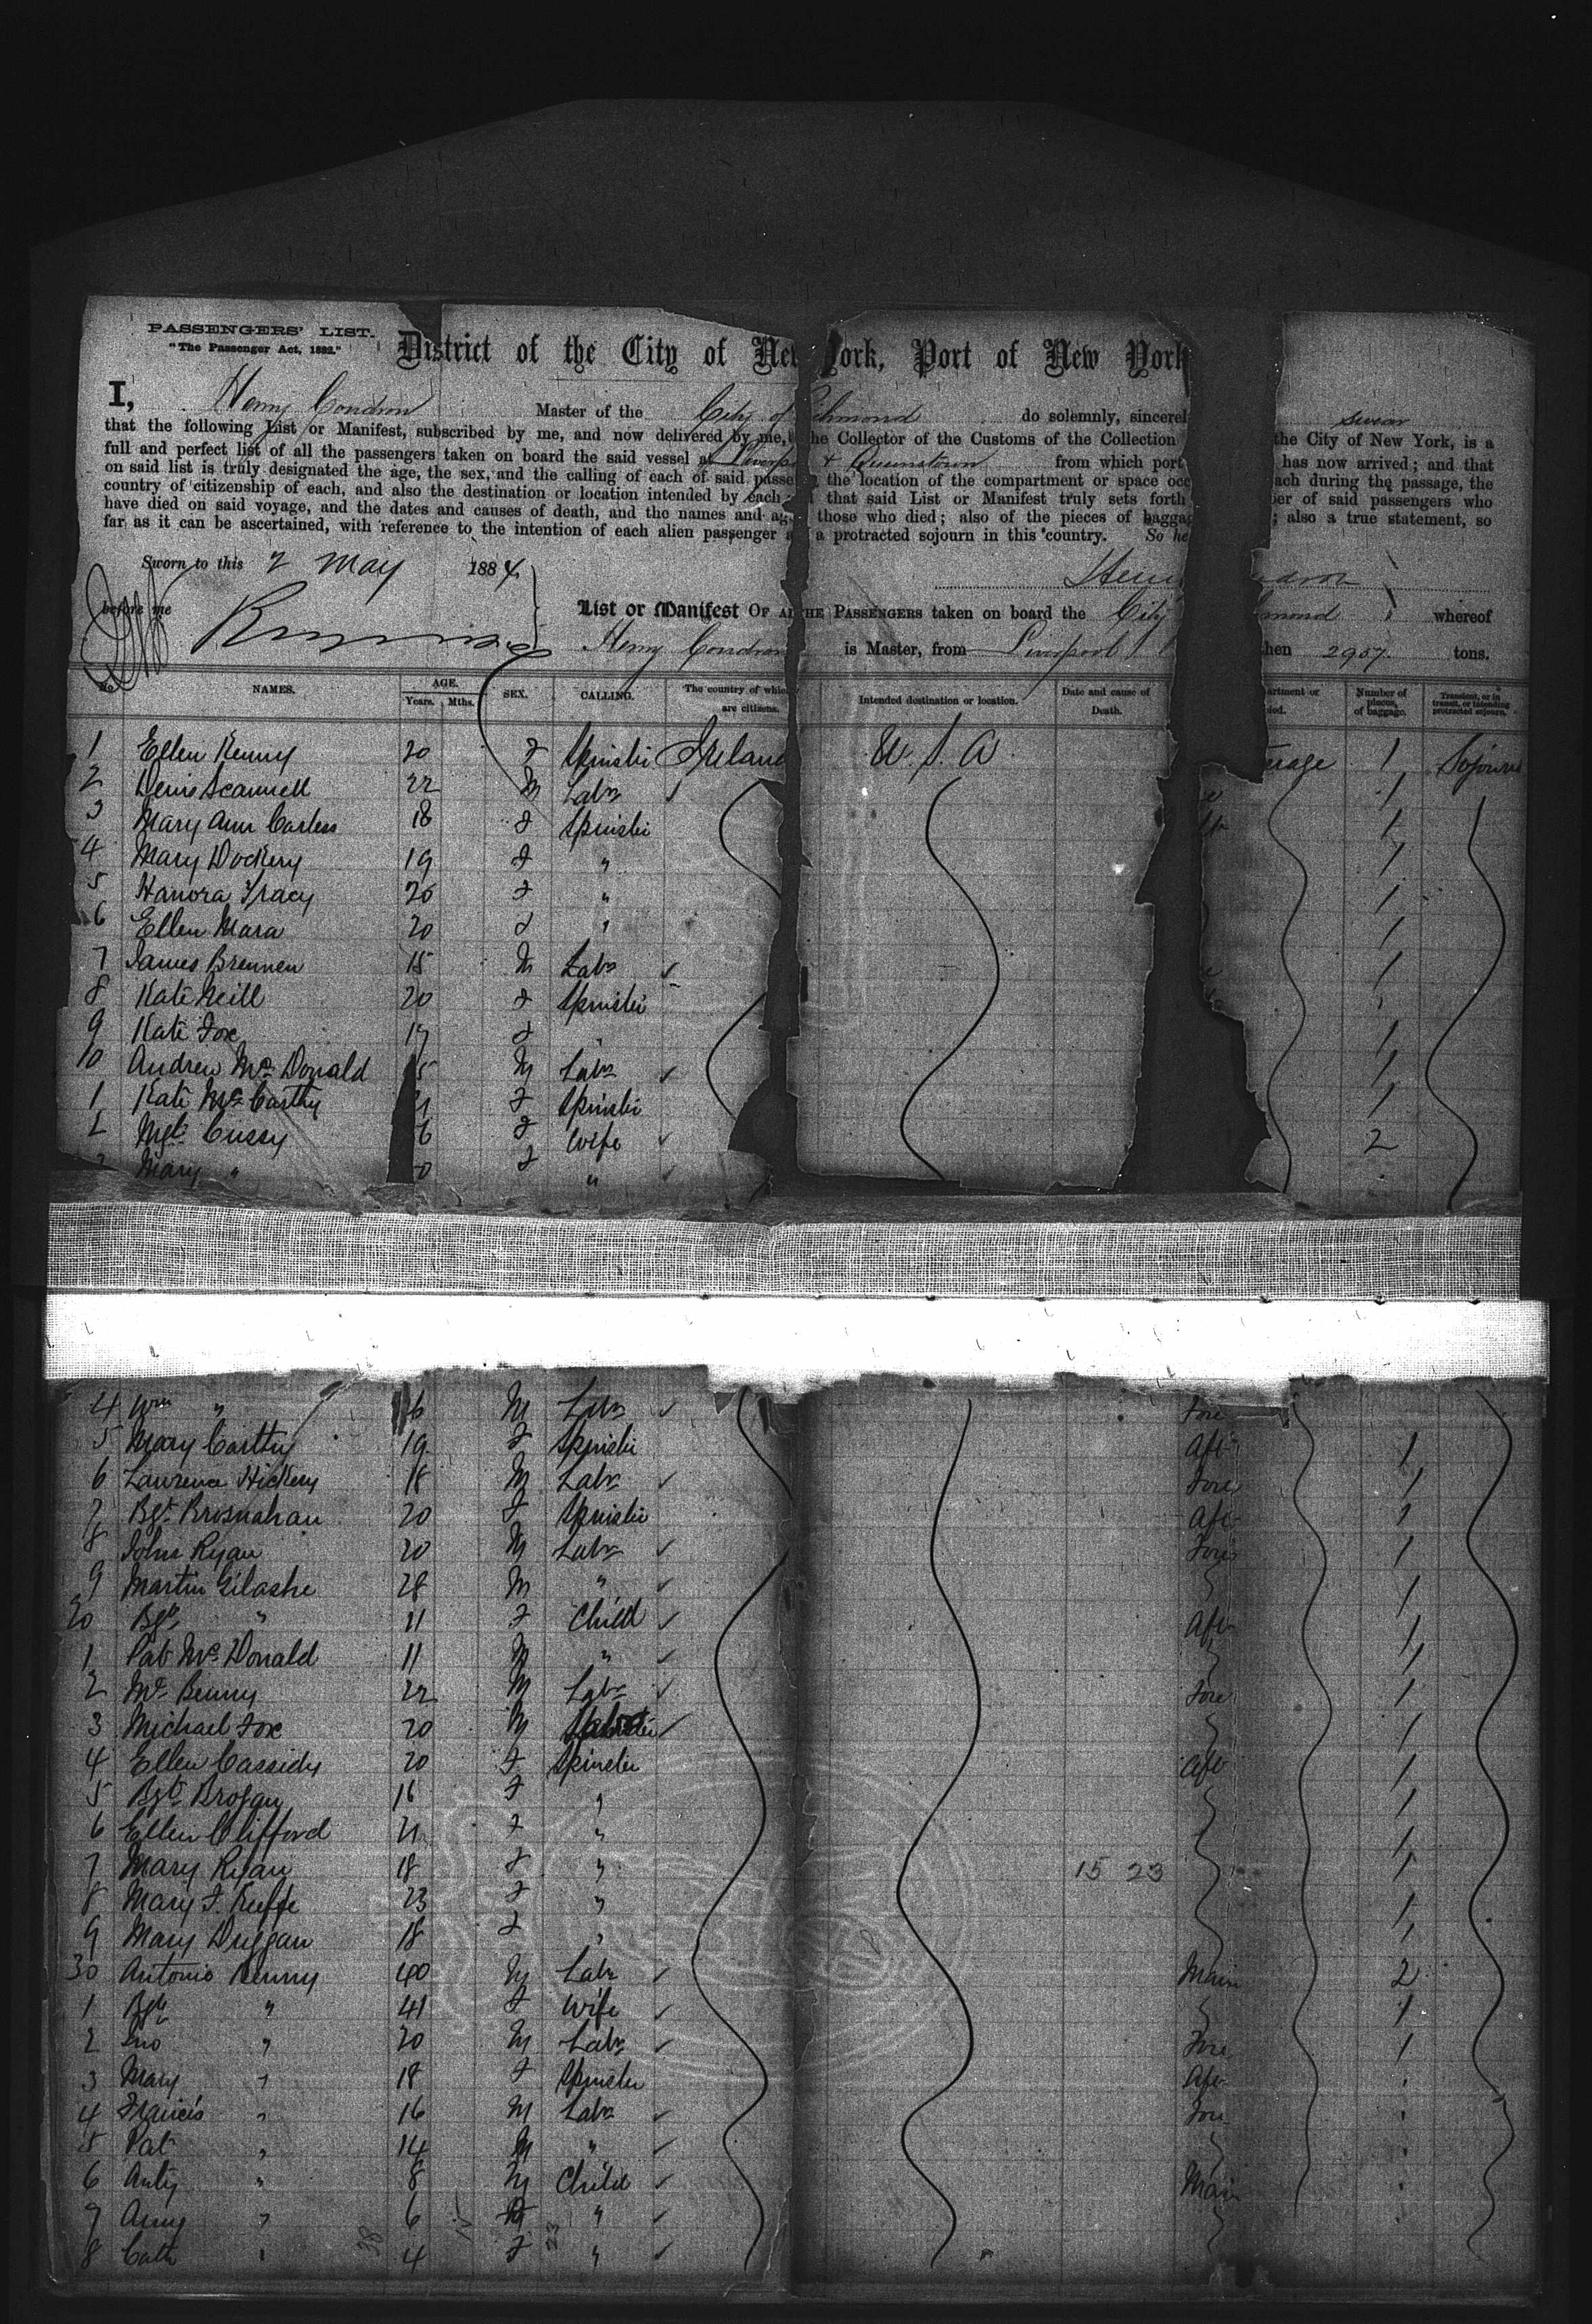 PASSENGERS' LIST.
"The Passenger Act, 1882."
District of the City of New York, Port of New York
I, Henry Condron Master of the City of Richmond do solemnly, sincerel swear
that the following List or Manifest, subscribed by me, and now delivered by me, the Collector of the Customs of the Collection the City of New York, is a
full and perfect list of all the passengers taken on board the said vessel at Liverpool & Queenstown from which port has now arrived; and that
on said list is truly designated the age, the sex, and the calling of each of said passe the location of the compartment or space occ ach during the passage, the
country of citizenship of each, and also the destination or location intended by each that said List or Manifest truly sets forth ber of said passengers who
have died on said voyage, and the dates and causes of death, and the names and ag those who died; also of the pieces of baggag ; also a true statement, so
far as it can be ascertained, with reference to the intention of each alien passenger a a protracted sojourn in this country. So he
Sworn to this 2 May 1884 Hen ndron
before me
List or Manifest OF A THE PASSENGERS taken on board the City mond whereof
Henry Condron is Master, from Liverpool then 2957 tons.
No. NAMES. AGE. Years. Mths. SEX. CALLING. The country of which are citizens. Intended destination or location. Date and cause of Death. artment or pied. Number of pieces, of baggage. Transient, or in transit, or intending protracted sojourn.
1 Ellen Kenny 20 F Spinster Ireland U. S. A erage 1 Sojourn
2 Denis Scannell 22 M Labr ✓ 1
3 Mary Ann Carless 18 F Spinster 1
4 Mary Dockery 19 F " 1
5 Hanora Tracy 20 F " 1
6 Ellen Mara 20 F " 1
7 James Brennen 15 M Labr ✓ 1
8 Kate Neill 20 F Spinster 1
9 Kate Fox 17 F " 1
10 Andrew Mc Donald 5 M Labr ✓ 1
1 Kate Mc Carthy 21 F Spinster 1
2 Mgt Cussy 6 F Wife ✓ 2
3 Mary " 0 F " ✓
4 Wm " 16 M Labr ✓ Fore
5 Mary Carthy 19 F Spinster Aft 1
6 Laurence Hickey 18 M Labr ✓ Fore 1
7 Bgt Brosnahan 20 F Spinster Aft 1
8 John Ryan 20 M Labr ✓ Fore 1
9 Martin Gilashe 28 M " ✓ 1
20 Bgt " 11 F Child ✓ Aft 1
1 Pat Mc Donald 11 M " ✓ 1
2 Mc Benny 22 M Labr ✓ Fore 1
3 Michael Fox 20 M ✓ 1
4 Ellen Cassidy 20 F Spinster Aft 1
5 Bgt Brogan 16 F " 1
6 Ellen Clifford 21 F " 1
7 Mary Ryan 18 F " 15 23 1
8 Mary F. Keeffe 23 F " 1
9 Mary Duggan 18 F " 1
30 Antonio Kenny 40 M Labr ✓ Main 2
1 Bgt " 41 F Wife ✓ 1
2 Jno " 20 M Labr ✓ Fore 1
3 Mary " 18 F Spinster Aft
4 Francis " 16 M Labr ✓ Fore
5 Pat " 14 M " ✓
6 Anty " 8 M Child ✓ Main
7 Anny " 6 " ✓
8 Cath " 4 F " ✓